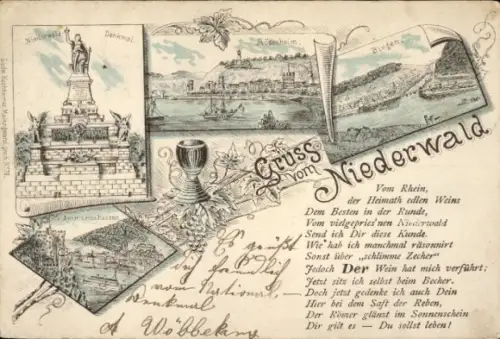 Niederwald Denkmal
Rüdesheim
Bingen
Assmannshausen
Gruss
vom
Niederwald
Vom Rhein,
der Heimath edlen Weins
Dem Besten in der Runde,
Vom vielgepries'nen Niederwald
Send ich Dir diese Kunde.
Wie hab ich manchmal räsonnirt
Sonst über „schlimme Zecher“
Jedoch Der Wein hat mich verführt;
Jetzt sitz ich selbst beim Becher.
Doch jetzt gedenke ich auch Dein
Hier bei dem Saft der Reben,
Der Römer glänzt im Sonnenschein
Dir gilt es — Du sollst leben!
Es grüßt
dich freundlich
vom National-
Denkmal
A Wöbbeking